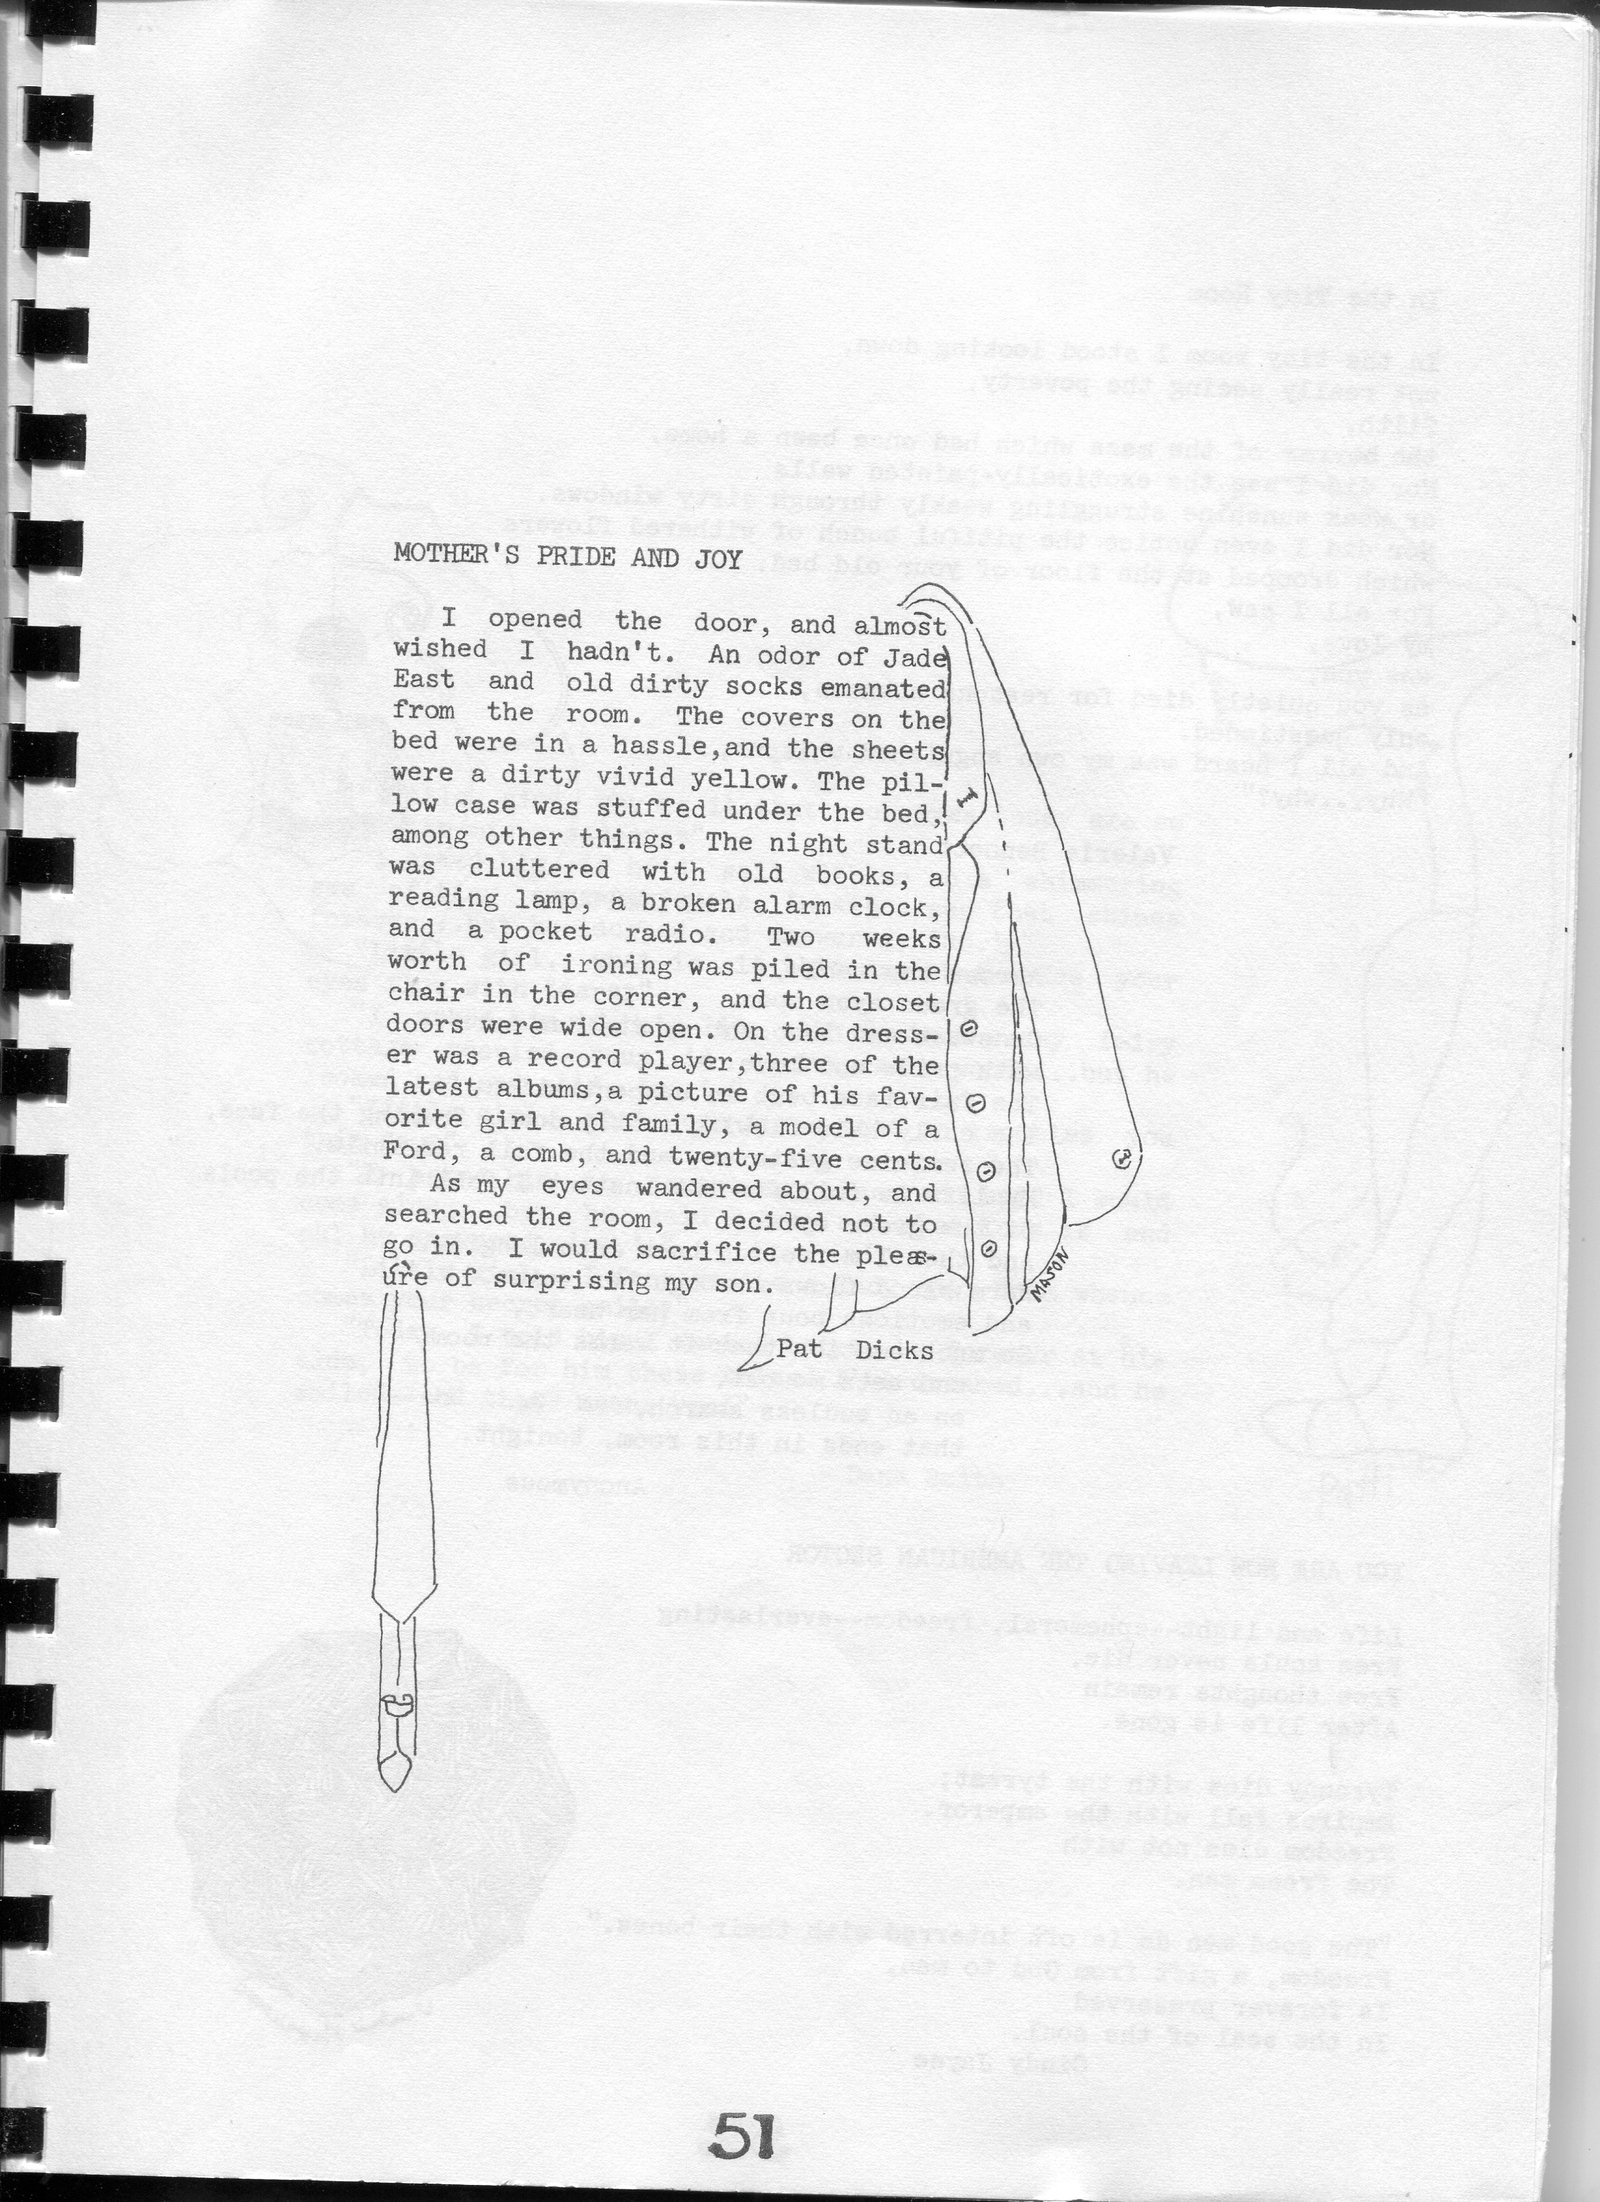 MOTHER'S PRIDE AND JOY
I opened the door, and almost
wished I hadn't. An odor of Jade
East and old dirty socks emanated
from the room. The covers on the
bed were in a hassle,and the sheets
were a dirty vivid yellow. The pil-
low case was stuffed under the bed,
among other things. The night stand
was cluttered with old books, a
reading lamp, a broken alarm clock,
and a pocket radio. Two weeks
worth of ironing was piled in the
chair in the corner, and the closet
doors were wide open. On the dress-
er was a record player,three of the
latest albums,a picture of his fav-
orite girl and family, a model of a
Ford, a comb, and twenty-five cents.
As my eyes wandered about, and
searched the room, I decided not to
go in. I would sacrifice the pleas-
ure of surprising my son.
MASON
Pat Dicks
51